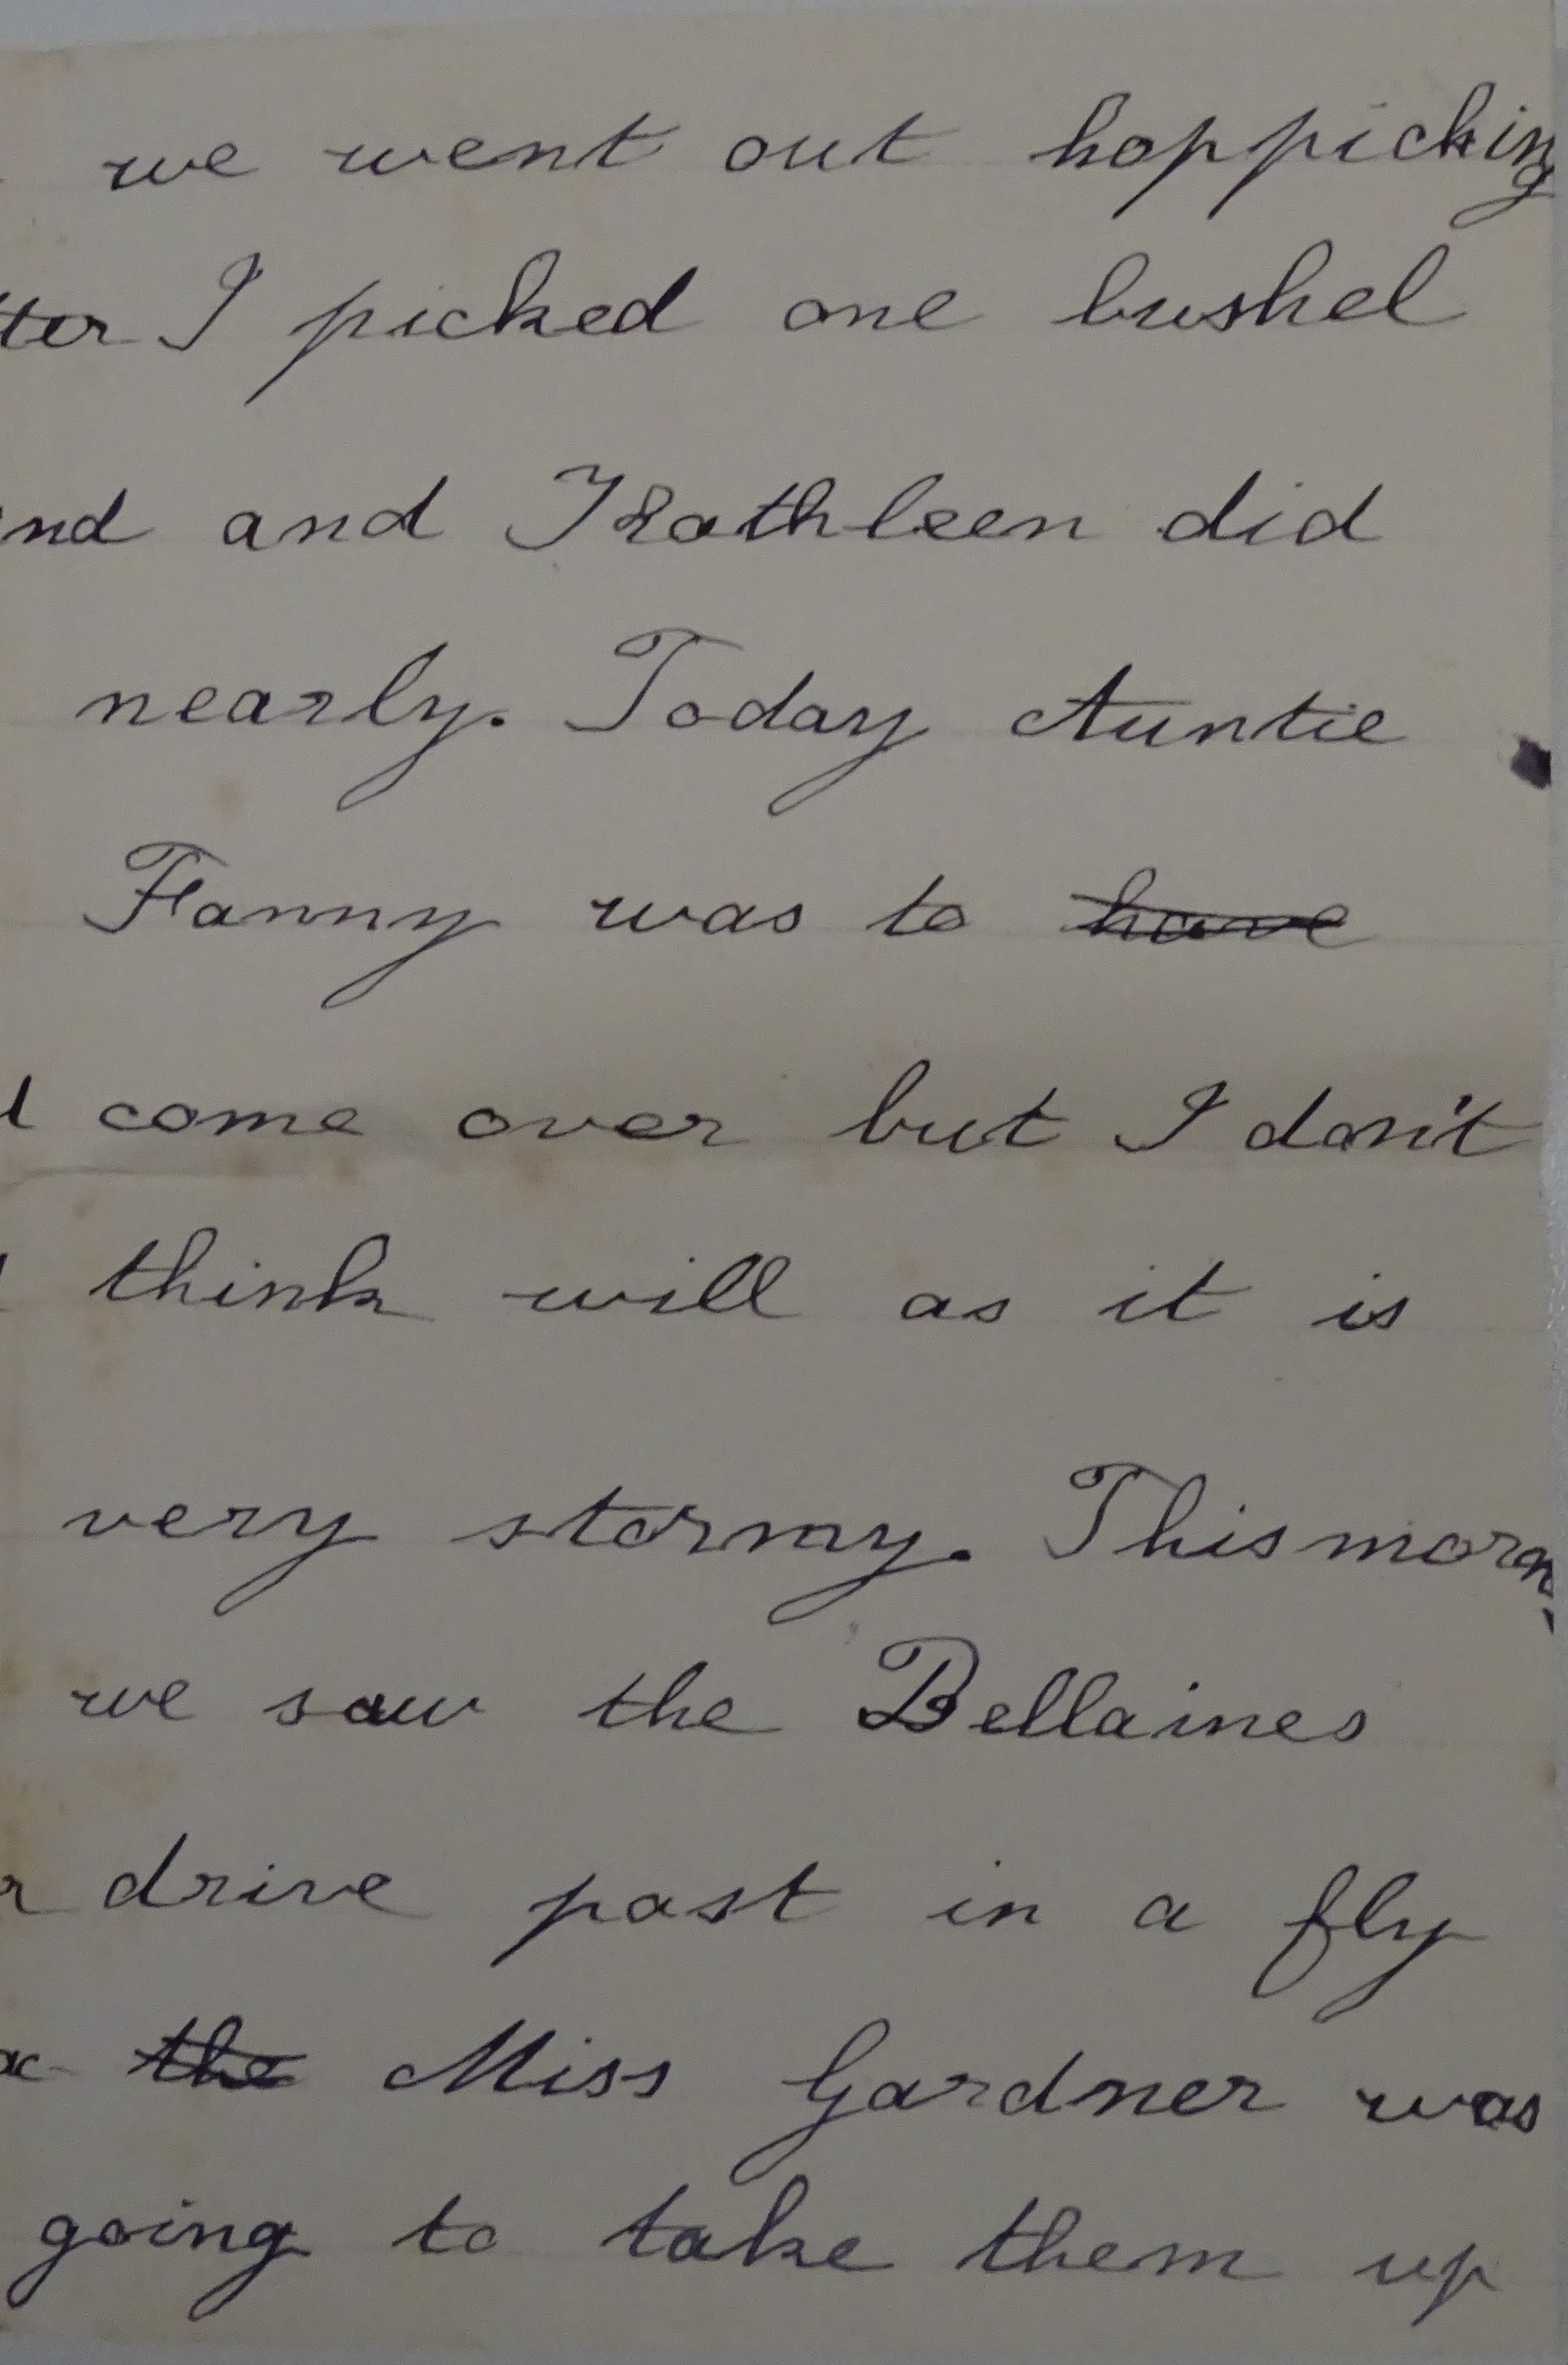 we went out hoppicking
I picked one bushel
and Kathleen did
nearly. Today Auntie
Fanny was to ~~have~~
come over but I don't
think will as it is
very stormy. This morn
we saw the Bellaines
drive past in a fly
~~the~~ Miss Gardner was
going to take them up